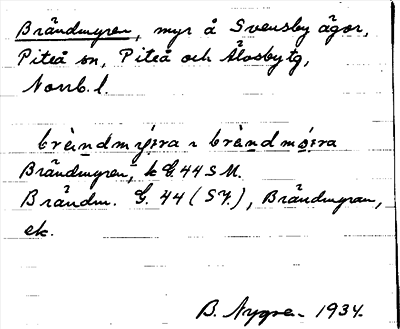 Brändmyren, myr å Svensby ägor,
Piteå sn, Piteå och Älvsby tg,
Norrb. l.
brä̀ndmy̆ra ~ brä̀ndmø̆ra
Brändmyren, k G. 44 S M.
Brändm. G. 44 (SV.), Brändmyran,
ek.
B. Nygre 1934.